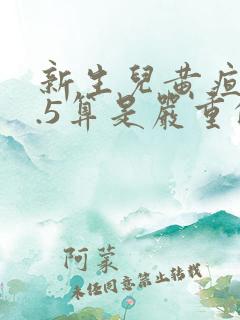 新生兒黃疸
.5算是嚴重
阿蒙
未经同意禁止转载